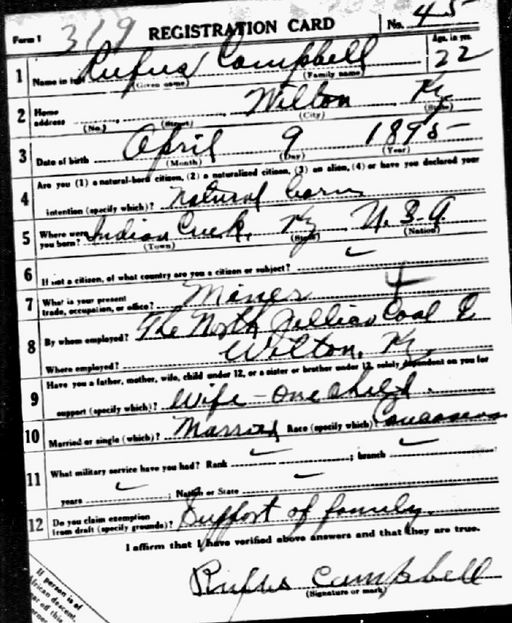 Form 1 319 REGISTRATION CARD No. 45
1 Name in full Rufus Campbell Age, in yrs. 22
(Given name) (Family name)
2 Home address Wilton Ky
(No.) (Street) (City) (State)
3 Date of birth April 9 1895
(Month) (Day) (Year)
Are you (1) a natural-born citizen, (2) a naturalized citizen, (3) an alien, (4) or have you declared your
4 intention (specify which)? natural born
5 Where were you born? Indian Creek, Ky U.S.A
(Town) (State) (Nation)
6 If not a citizen, of what country are you a citizen or subject?
7 What is your present trade, occupation, or office? Miner
8 By whom employed? The North Jellico Coal
Where employed? Wilton, Ky
Have you a father, mother, wife, child under 12, or a sister or brother under 12, solely dependent on you for
9 support (specify which)? Wife - one child
10 Married or single (which)? Married Race (specify which)? Caucasian
11 What military service have you had? Rank ; branch
years ; Nation or State
12 Do you claim exemption from draft (specify grounds)? Support of family.
I affirm that I have verified above answers and that they are true.
Rufus Campbell
(Signature or mark)
If person is of
African descent,
tear off this
corner